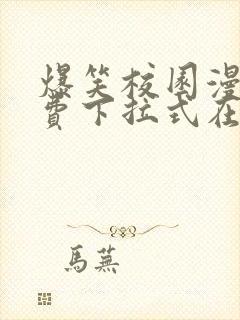 爆笑校园漫
费下拉式在
馬蕪